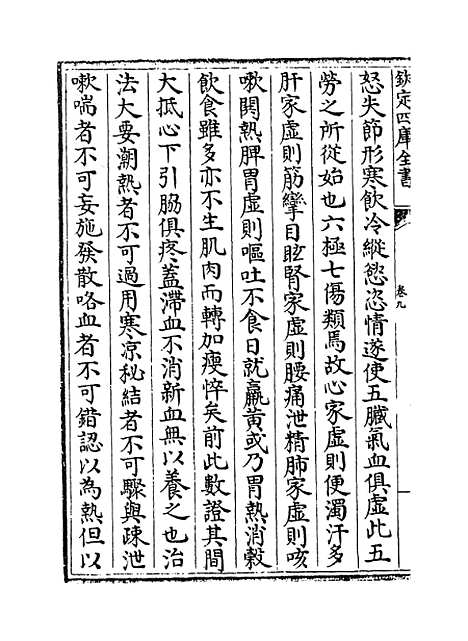 欽定四庫全書
卷九
怒失節形寒飲冷縱慾恣情遂使五臟氣血俱虛此五
勞之所從始也六極七傷類焉故心家虛則便濁汗多
肝家虛則筋攣目眩腎家虛則腰痛泄精肺家虛則咳
嗽閧熱脾胃虛則嘔吐不食日就羸黄或乃胃熱消穀
飲食雖多亦不生肌肉而轉加瘦悴矣前此數證其間
大抵心下引脇俱疼蓋滯血不消新血無以養之也治
法大要潮熱者不可過用寒凉秘結者不可驟與疎泄
嗽喘者不可妄施發散咯血者不可錯認以為熱但以